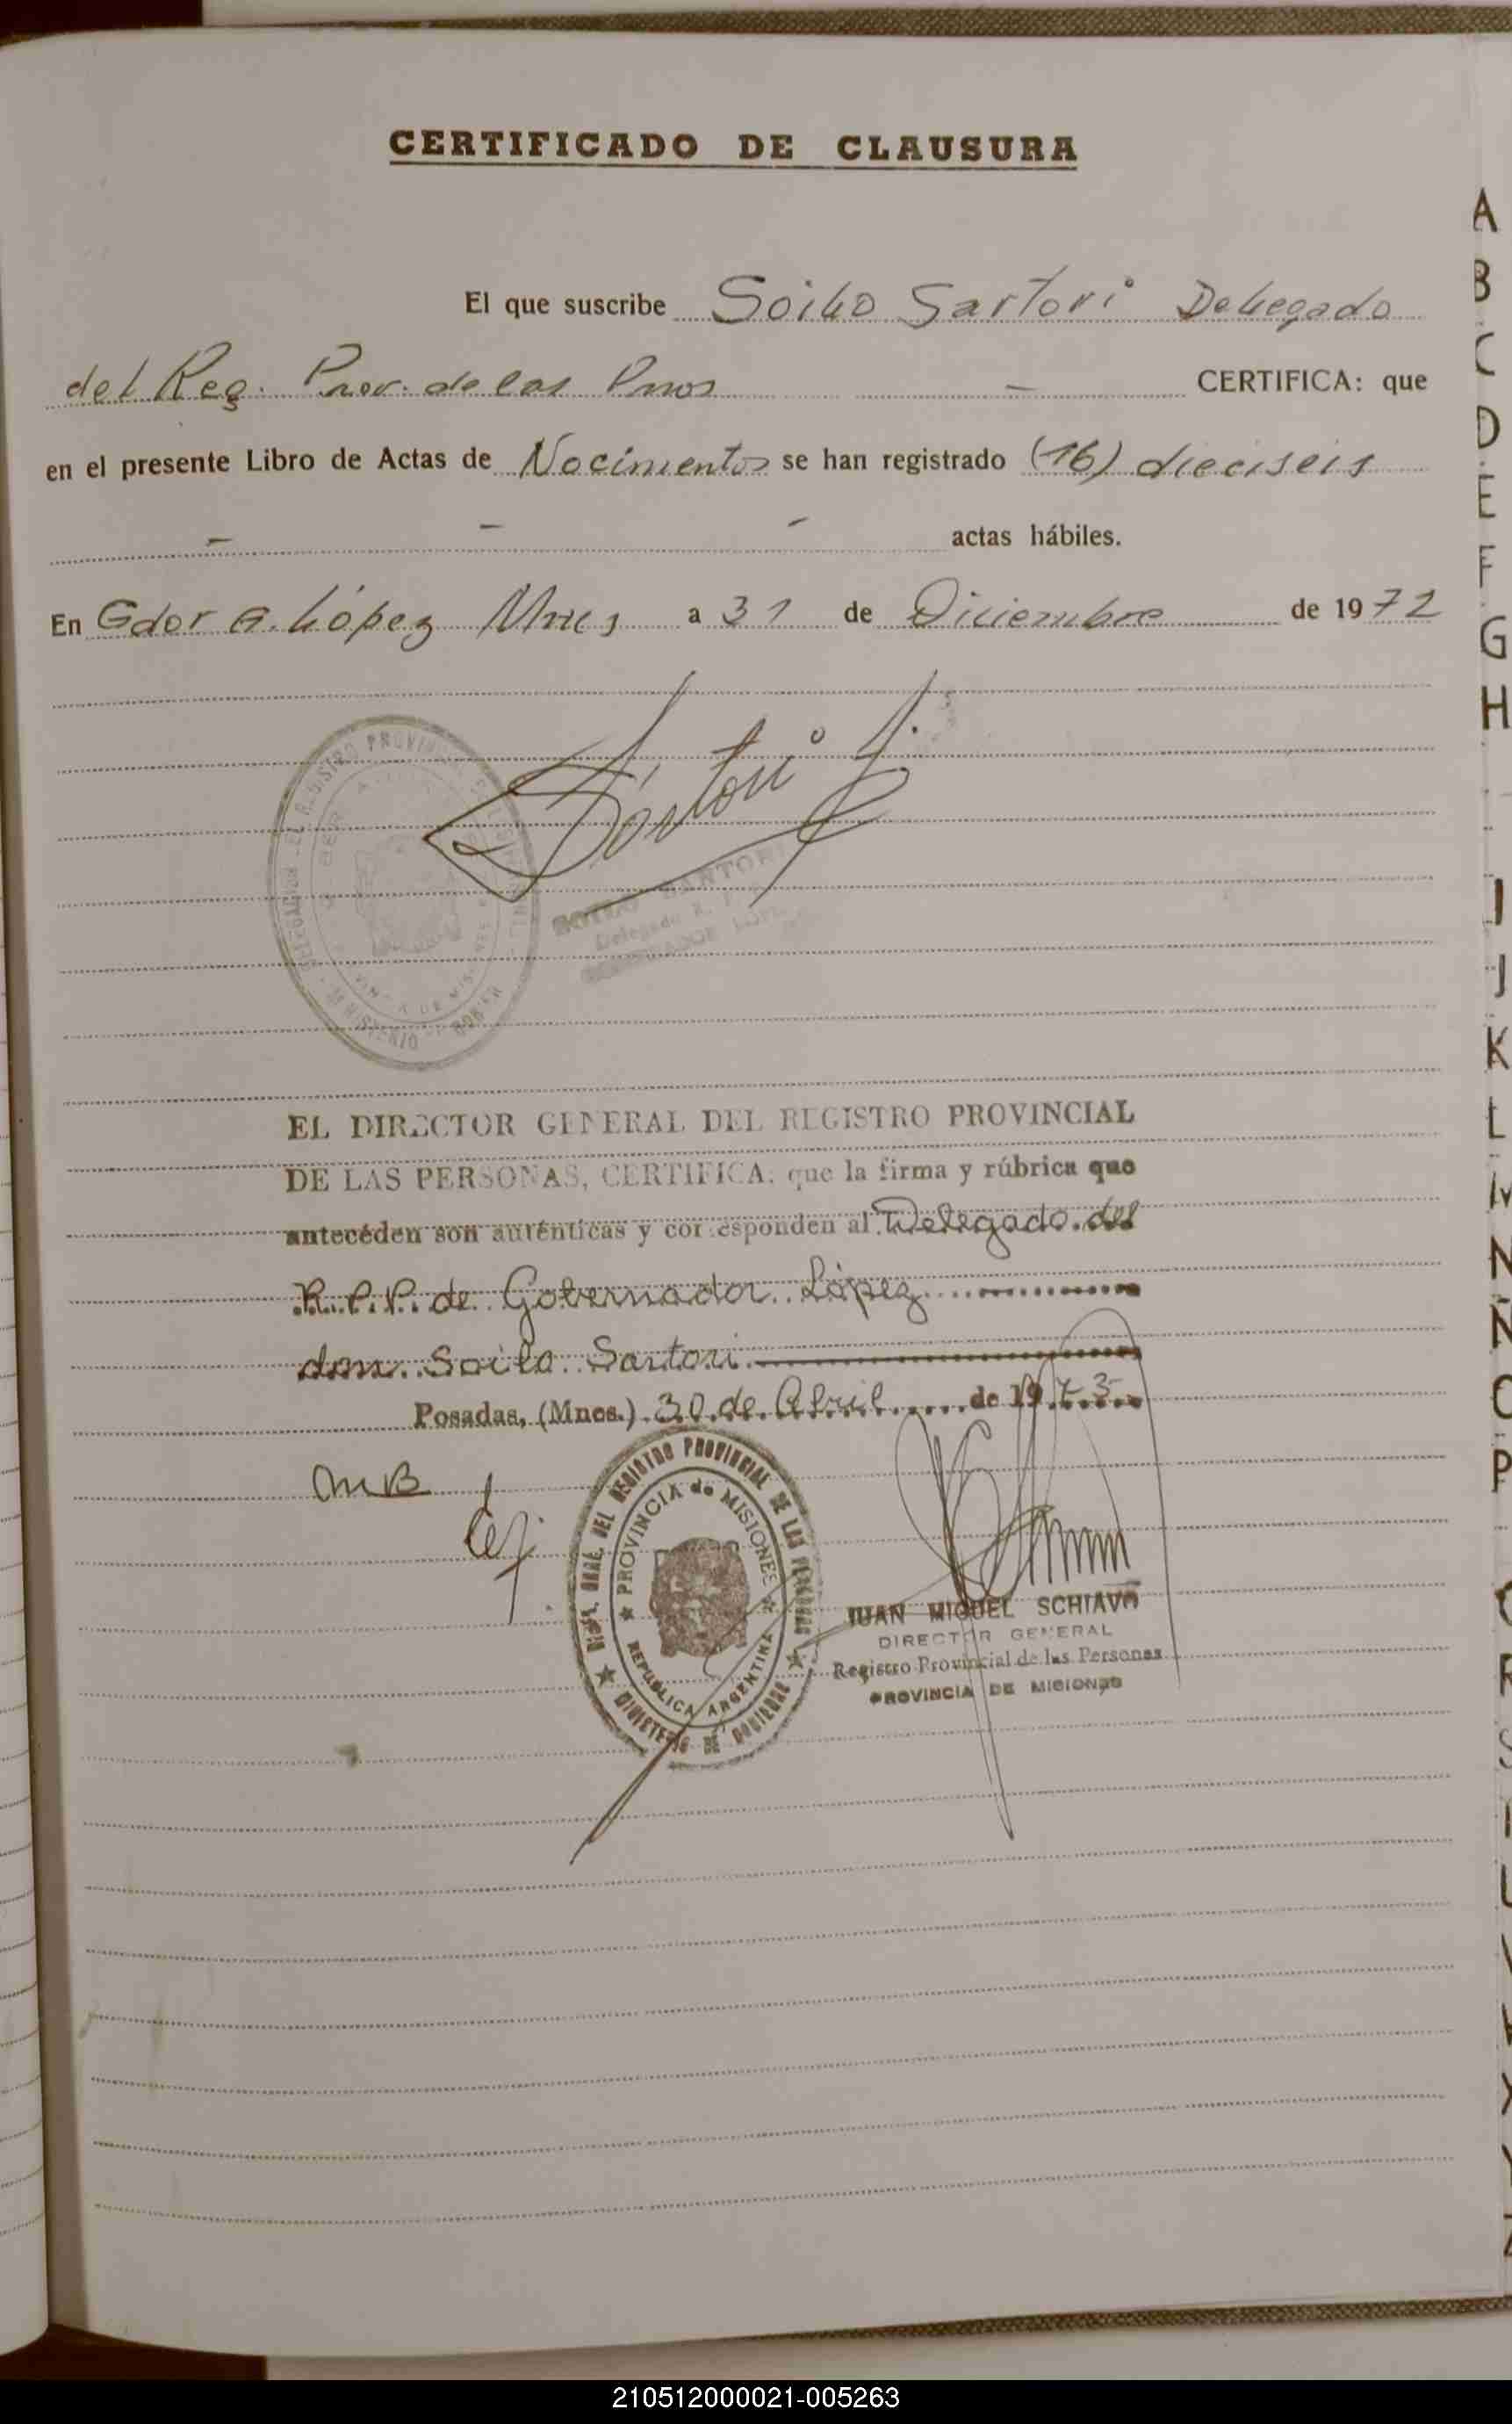 CERTIFICADO DE CLAUSURA
El que suscribe Soilo Sartori Delegado
del Reg. Prov. de las Pnas CERTIFICA: que
en el presente Libro de Actas de Nacimientos se han registrado (16) dieciseis
actas hábiles.
En Gdor G. López Mnes a 31 de Diciembre de 1972
Sartori
SOILO SARTORI
Delegado R.
EL DIRECTOR GENERAL DEL REGISTRO PROVINCIAL
DE LAS PERSONAS, CERTIFICA: que la firma y rúbrica que
anteceden son auténticas y corresponden al Delegado del
R.P.P. de Gobernador López
don Soilo Sartori
Posadas, (Mnes.) 30 de Abril de 1973
MB
DIREC. GRAL. DEL REGISTRO PROVINCIAL DE LAS PERSONAS
MINISTERIO DE GOBIERNO
PROVINCIA de MISIONES
REPUBLICA ARGENTINA
JUAN MIGUEL SCHIAVO
DIRECTOR GENERAL
Registro Provincial de las Personas
PROVINCIA DE MISIONES
A
B
C
D
E
F
G
H
I
J
K
L
M
N
Ñ
O
P
Q
R
S
210512000021-005263